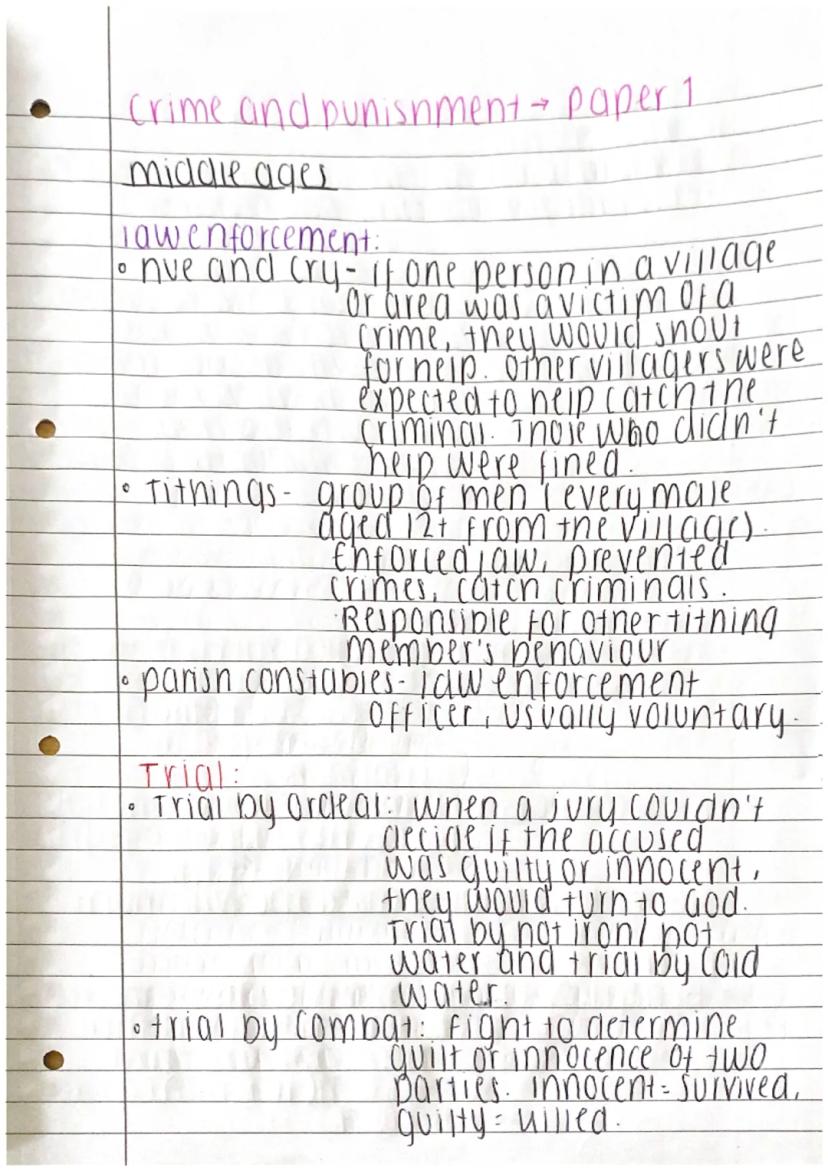 Crime and punishment → paper 1
middle ages
law enforcement:
• hue and cry - if one person in a village
or area was a victim of a
crime, they would shout
for help. Other villagers were
expected to help catch the
criminal. Those who didn't
help were fined.
• Tithings - group of men (every male
aged 12+ from the village).
Enforced law, prevented
crimes, catch criminals.
Responsible for other tithing
member's behaviour
• parish constables - law enforcement
officer, usually voluntary.
Trial:
• Trial by Ordeal: when a jury couldn't
decide if the accused
was guilty or innocent,
they would turn to God.
Trial by hot iron/hot
water and trial by cold
water.
• trial by Combat: fight to determine
guilt or innocence of two
parties. innocent = survived,
guilty = killed.